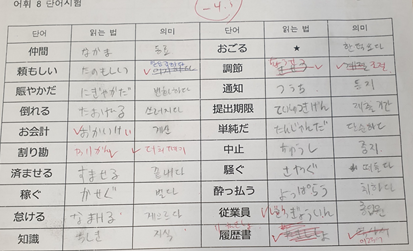 어휘 8 단어시험
-4.
단어 읽는 법 의미 단어 읽는 법 의미
仲間 なかま 동료 おごる ★ 한턱내다
頼もしい たのもしい 調節
賑やかだ にぎやかだ 번화하다 通知 つうち 통지
倒れる 쓰러지다 提出期限 ていしゅつきげん
お会計 おかいけい 계산 単純だ たんじゅんだ 단순하다
割り勘 わりかん 中止 ちゅうし 중지
済ませる すませる 끝내다 騒ぐ さわぐ 떠들다
稼ぐ かせぐ 벌다 酔っ払う よっぱらう 취하다
怠ける なまける 게으르다 従業員 ぎょういん 종업원
知識 ちしき 지식 履歴書